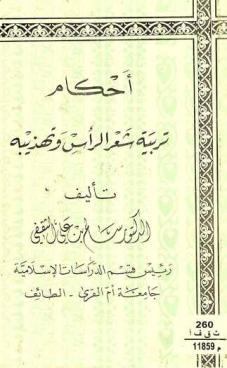 أحكام
تربية شعر الرأس وتهذيبه
تأليف
الدكتور سالم بن علي الثقفي
رئيس قسم الدراسات الإسلامية
جامعة أم القرى - الطائف
260
ث ق ف أ
11859 م